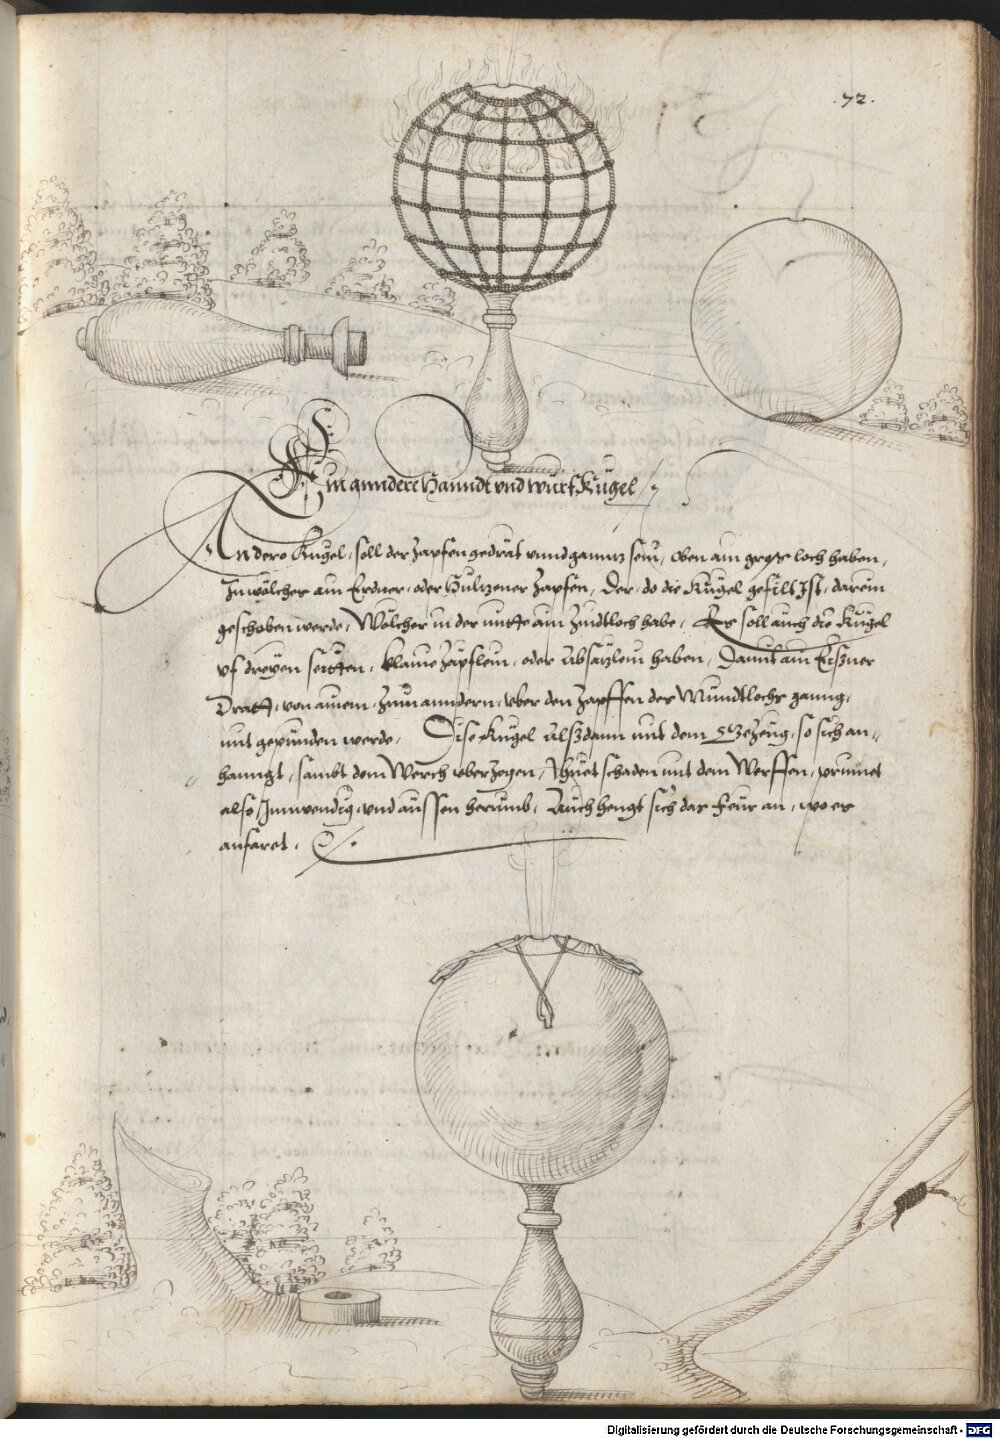 .72.
Ein anndere Hanndt vnd wurf Kugel
An dero Kugel, soll der Zapfen gedrät vnnd ganntz sein, oben ain gross loch haben,
In wölcher ain Erdner, oder Hultzener Zapfen, Der, do die Kugel gefült Ist, darein
geschoben werde, Wölcher in der mitte ain Zindtloch habe, Es soll auch die Kugel
vf dreyen seitten, klaine Zäpflein, oder Absätzlein haben, Damit ain Eissner
Dratt, von ainem, Zum anndern, vber den Zapffen des Mundtlochs ganng,
mit gepunden werde, Dise Kugel Alszdann mit dem Zeug, so sich an-
hanngt, sambt dem Werch vberzogen, Thuet schaden mit dem Werffen, prinnet
also Innwendig, vnd aussen herumb, Auch hengt sich das Feur an, wo es
anfaret.
Digitalisierung gefördert durch die Deutsche Forschungsgemeinschaft - DFG